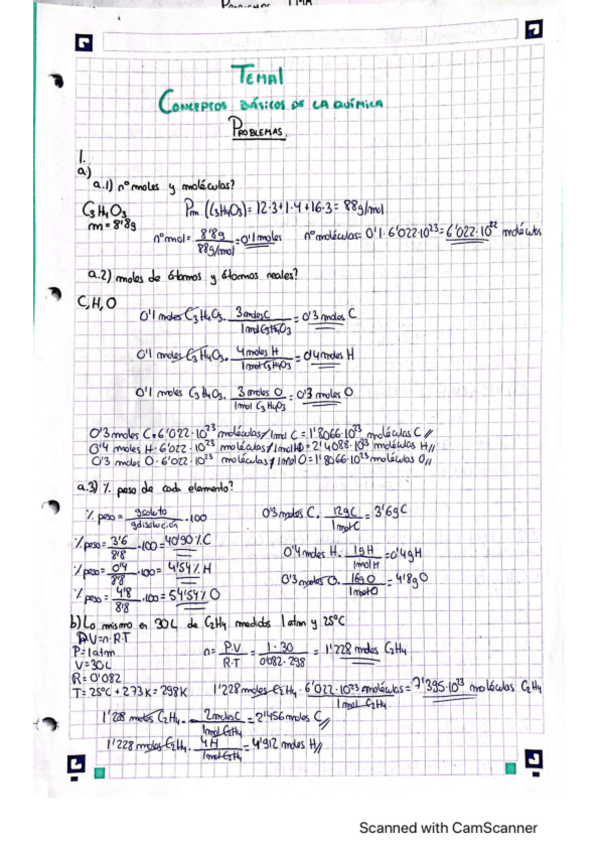 TEMA 1
CONCEPTOS BÁSICOS DE LA QUÍMICA
PROBLEMAS
1.
a)
a.1) nº moles y moléculas?
C₃H₄O₃ Pm (C₃H₄O₃) = 12·3+1·4+16·3 = 88g/mol
m = 8'8g
nº mol = 8'8g / 88g/mol = 0'1 moles nº moléculas = 0'1·6'022·10²³ = 6'022·10²² moléculas
a.2) moles de átomos y átomos reales?
C, H, O
0'1 moles C₃H₄O₃ · 3 moles C / 1 mol C₃H₄O₃ = 0'3 moles C
0'1 moles C₃H₄O₃ · 4 moles H / 1 mol C₃H₄O₃ = 0'4 moles H
0'1 moles C₃H₄O₃ · 3 moles O / 1 mol C₃H₄O₃ = 0'3 moles O
0'3 moles C · 6'022·10²³ moléculas/1mol C = 1'8066·10²³ moléculas C //
0'4 moles H · 6'022·10²³ moléculas/1mol H = 2'4088·10²³ moléculas H //
0'3 moles O · 6'022·10²³ moléculas/1mol O = 1'8066·10²³ moléculas O //
a.3) % peso de cada elemento?
% peso = g soluto / g disolución · 100 0'3 moles C · 12g C / 1mol C = 3'6g C
% peso = 3'6 / 8'8 · 100 = 40'90 % C
0'4 moles H · 1g H / 1mol H = 0'4g H
% peso = 0'4 / 8'8 · 100 = 4'54 % H
0'3 moles O · 16g O / 1mol O = 4'8g O
% peso = 4'8 / 8'8 · 100 = 54'54 % O
b) Lo mismo en 30L de C₂H₄ medidos 1 atm y 25ºC
P·V = n·R·T
P = 1 atm n = P·V / R·T = 1·30 / 0'082·298 = 1'228 moles C₂H₄
V = 30L
R = 0'082
T = 25ºC + 273K = 298K 1'228 moles C₂H₄ · 6'022·10²³ moléculas / 1mol C₂H₄ = 7'395·10²³ moléculas C₂H₄
1'228 moles C₂H₄ · 2 moles C / 1mol C₂H₄ = 2'456 moles C //
1'228 moles C₂H₄ · 4 H / 1mol C₂H₄ = 4'912 moles H //
Scanned with CamScanner